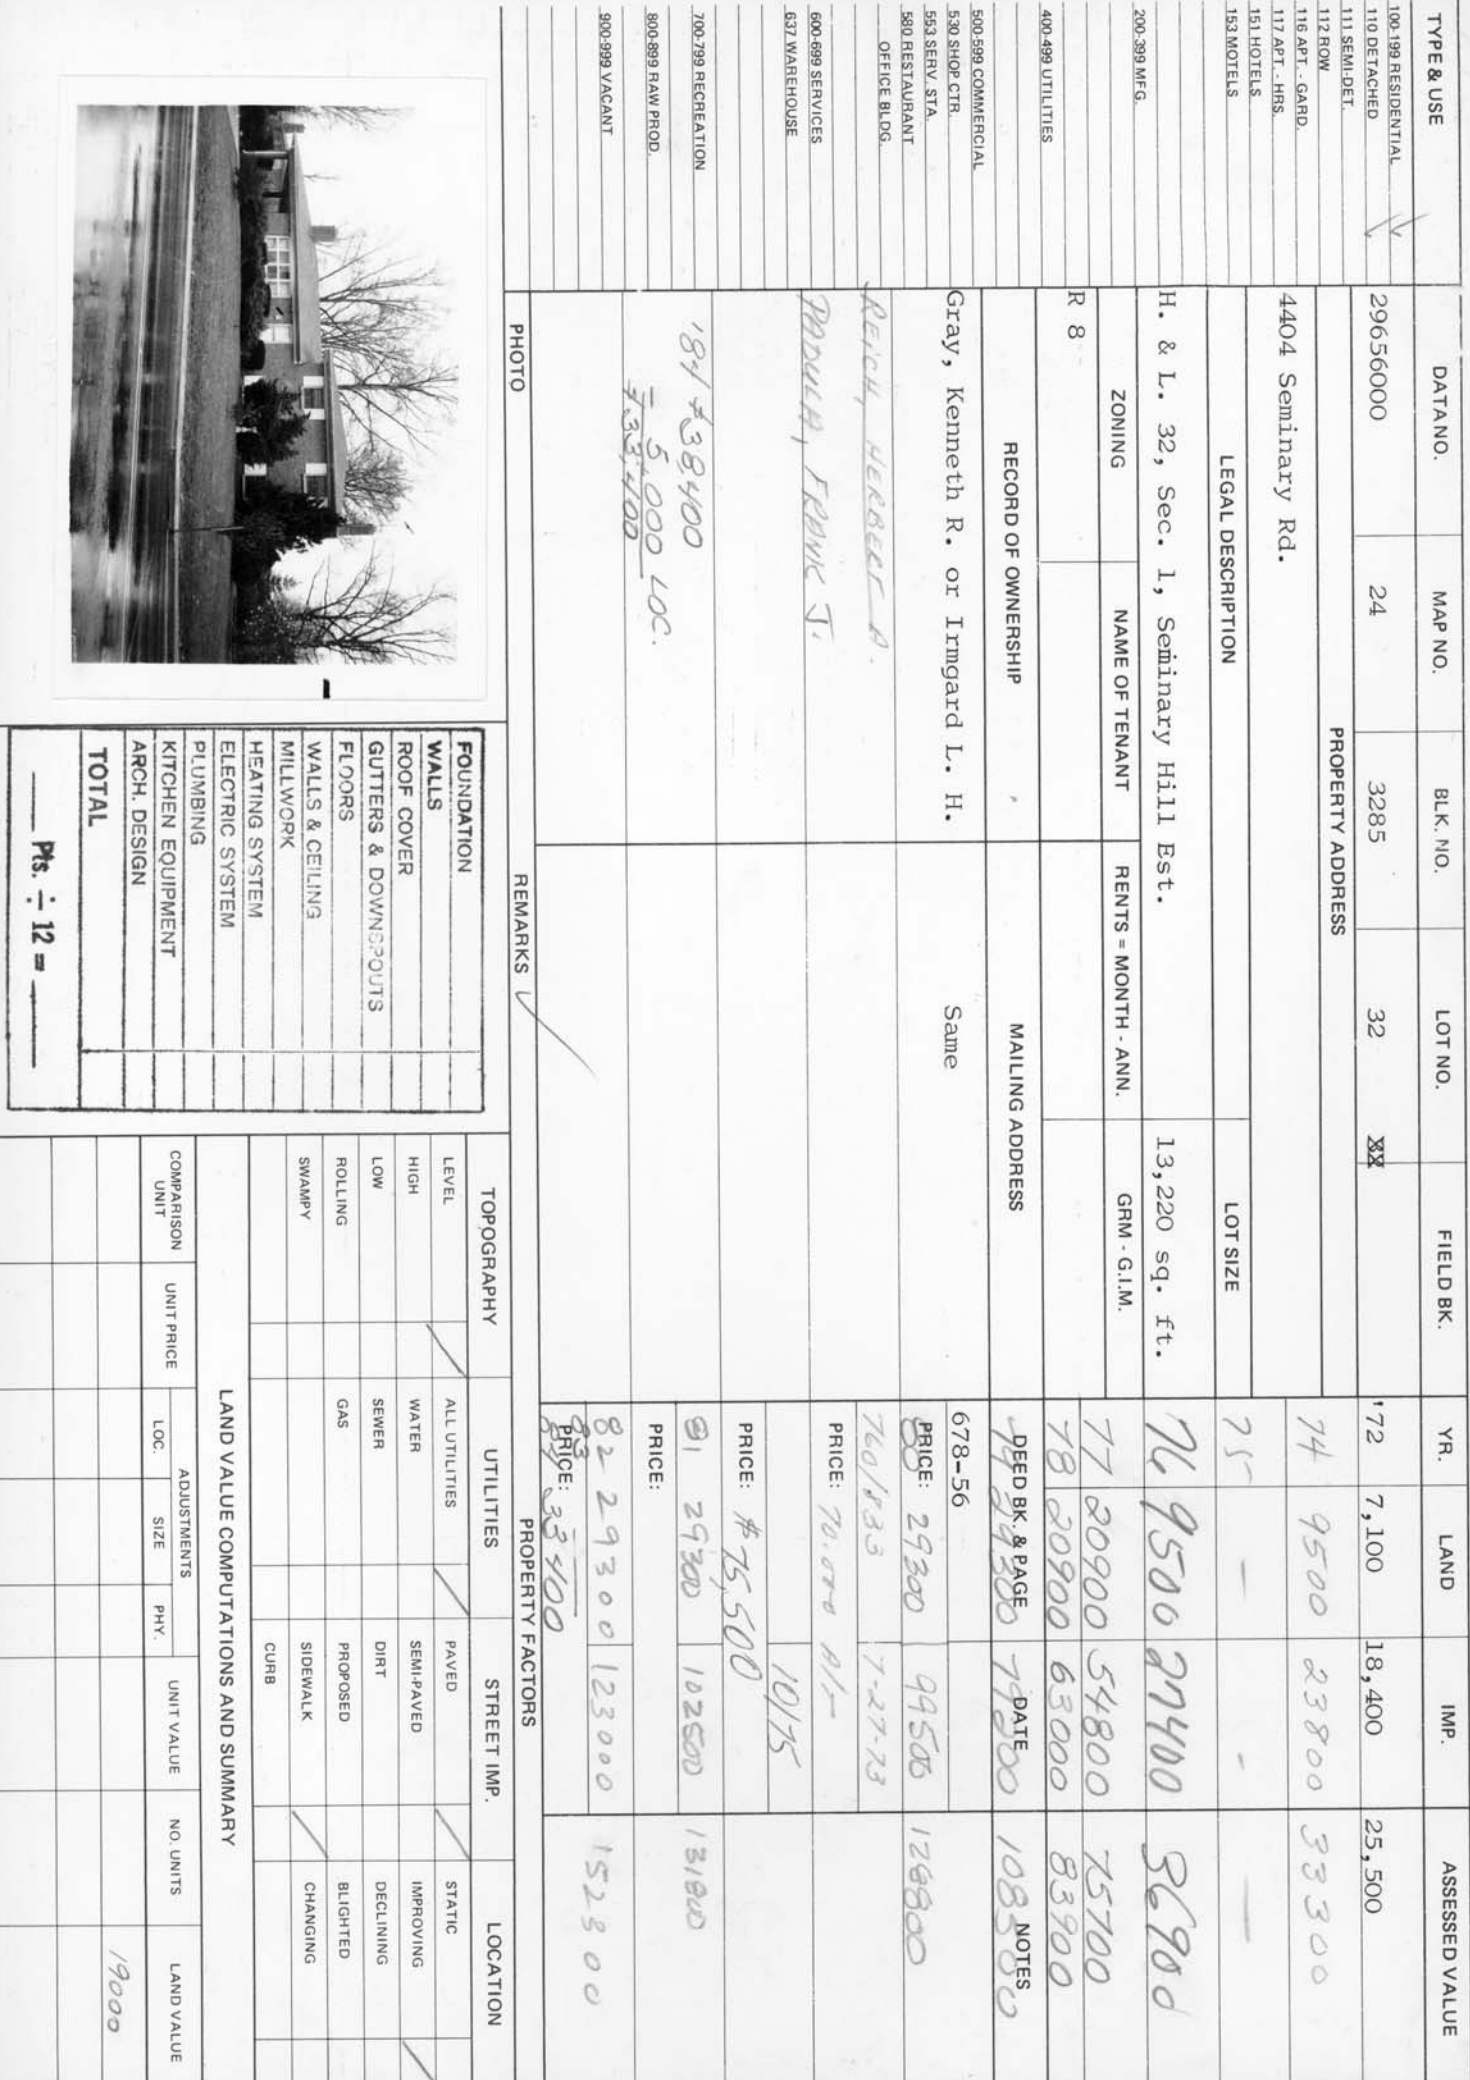 TYPE & USE
100-199 RESIDENTIAL
110 DETACHED
111 SEMI-DET.
112 ROW
116 APT. - GARD.
117 APT. - HRS.
151 HOTELS
153 MOTELS
200-399 MFG.
400-499 UTILITIES
500-599 COMMERCIAL
530 SHOP CTR.
553 SERV. STA.
580 RESTAURANT
OFFICE BLDG.
600-699 SERVICES
637 WAREHOUSE
700-799 RECREATION
800-899 RAW PROD.
900-999 VACANT
DATA NO. MAP NO. BLK. NO. LOT NO. FIELD BK.
29656000 24 3285 32 XX
PROPERTY ADDRESS
4404 Seminary Rd.
LEGAL DESCRIPTION LOT SIZE
H. & L. 32, Sec. 1, Seminary Hill Est. 13,220 sq. ft.
ZONING NAME OF TENANT RENTS = MONTH - ANN. GRM - G.I.M.
R 8
RECORD OF OWNERSHIP MAILING ADDRESS
Gray, Kenneth R. or Irmgard L. H. Same
REICH, HERBERT A.
PADULA, FRANK J.
'84 $38,400
5,000 LOC.
$33,400
YR. LAND IMP. ASSESSED VALUE
'72 7,100 18,400 25,500
74 9500 23800 33300
75 — - —
76 9500 27400 36900
77 20900 54800 75700
78 20900 63000 83900
DEED BK. & PAGE DATE NOTES
79 29300 79200 108500
678-56
PRICE:
80 29300 99500 128800
760/833 7-27-73
PRICE: 70.000 A/-
10/75
PRICE: $75,500
81 29300 102500 131800
PRICE:
82 29300 123000 152300
83
PRICE:
84 33400
PHOTO REMARKS PROPERTY FACTORS
FOUNDATION
WALLS
ROOF COVER
GUTTERS & DOWNSPOUTS
FLOORS
WALLS & CEILING
MILLWORK
HEATING SYSTEM
ELECTRIC SYSTEM
PLUMBING
KITCHEN EQUIPMENT
ARCH. DESIGN
TOTAL
Pts. ÷ 12 =
TOPOGRAPHY UTILITIES STREET IMP. LOCATION
LEVEL ALL UTILITIES PAVED STATIC
HIGH WATER SEMI-PAVED IMPROVING
LOW SEWER DIRT DECLINING
ROLLING GAS PROPOSED BLIGHTED
SWAMPY SIDEWALK CHANGING
CURB
LAND VALUE COMPUTATIONS AND SUMMARY
COMPARISON UNIT UNIT PRICE ADJUSTMENTS UNIT VALUE NO. UNITS LAND VALUE
LOC. SIZE PHY.
19000